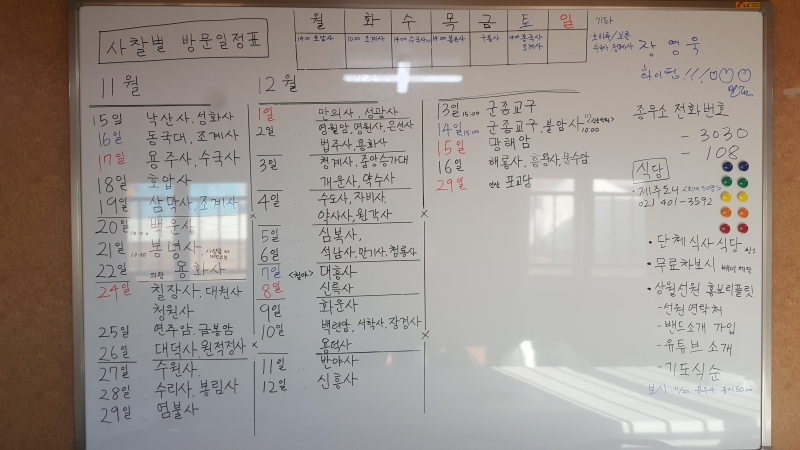 사찰별 방문일정표
월 화 수 목 금 토 일
14:00 호압사 10:00 조계사 14:00 수국사 14:00 봉은사 구룡사 14:00 봉국사
조계사
기타
장영욱
화이팅!!!
11월
15일 낙산사, 성화사
16일 동국대, 조계사
17일 용주사, 수국사
18일 호압사
19일 삼막사, 조계사
20일 10:00 백운사
21일 10:00 봉녕사
22일 의왕 용화사
24일 칠장사, 대천사
청원사
25일 연주암, 금봉암
26일 대덕사, 원적정사
27일 수원사
28일 수리사, 봉림사
29일 염불사
12월
1일 만의사, 성광사
2일 영월암, 영원사, 은선사
법주사, 용화사
3일 청계사, 중앙승가대
개운사, 약수사
4일 수도사, 자비사,
약사사, 원각사
5일 심복사,
6일 석남사, 만기사, 청룡사
7일 대흥사
8일 신륵사
9일 화운사
10일 백련암, 서학사, 장경사
용덕사
11일 반야사
12일 신흥사
13일 15:00 군종교구
14일 15:00 군종교구, 불암사 10:00
15일 망해암
16일 해룡사, 흥왕사, 문수암
29일 안산 포교당
종무소 전화번호
- 3030
- 108
식당
· 제주도니
02) 401-3592
· 단체식사 식당
· 무료차보시
· 상월선원 홍보리플릿
- 선원연락처
- 밴드소개 가입
- 유튜브 소개
- 기도식순
보시